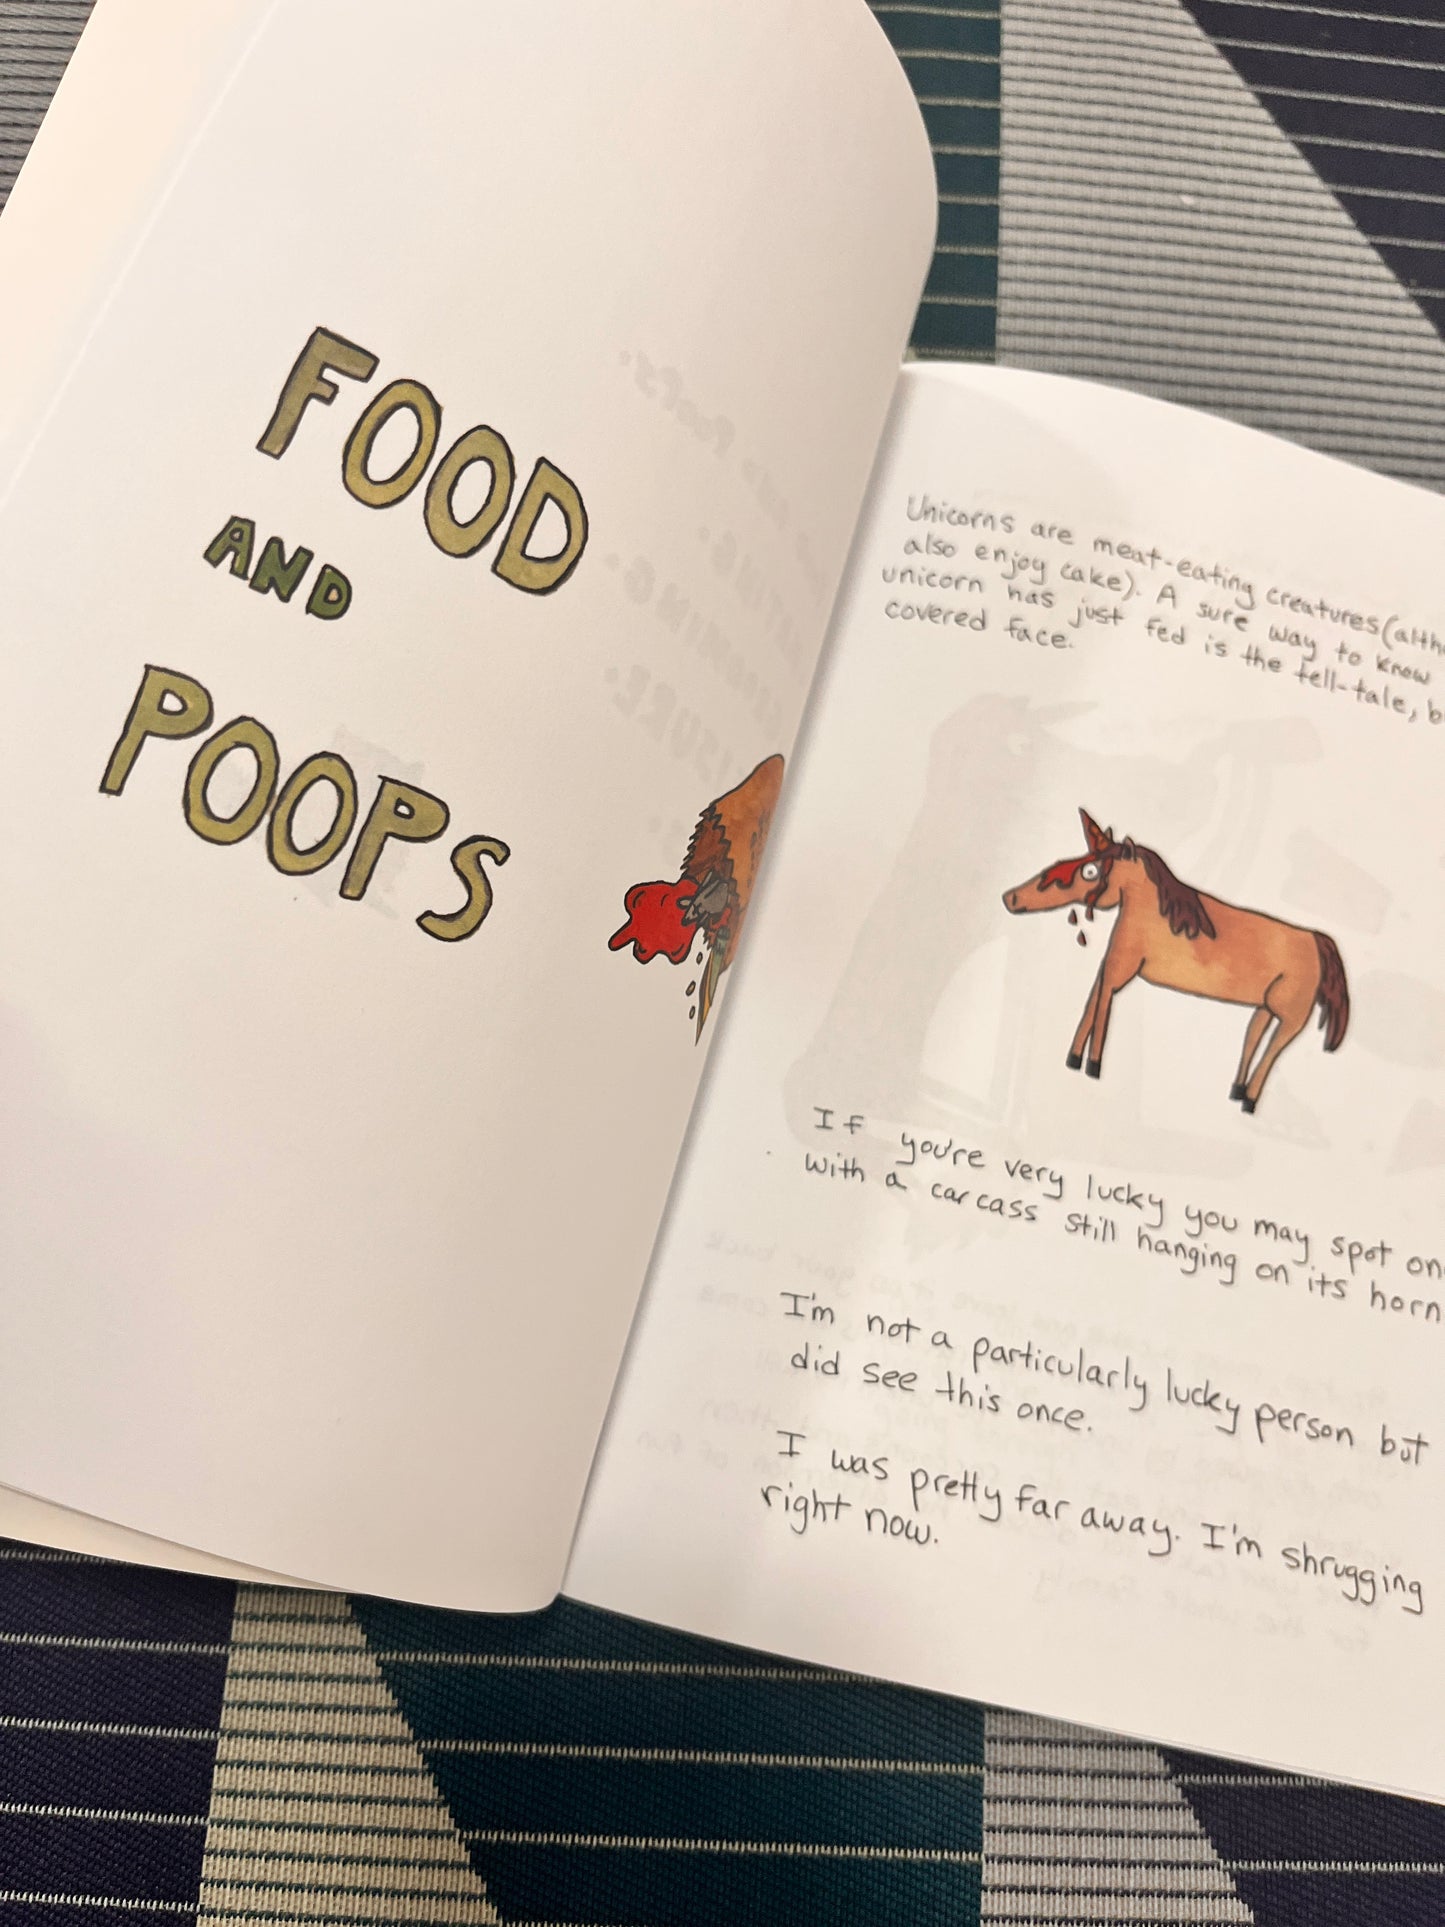 FOOD
AND
POOPS
Unicorns are meat-eating creatures (alth
also enjoy cake). A sure way to know
unicorn has just fed is the tell-tale, b
covered face.
If you're very lucky you may spot on
with a carcass still hanging on its horn
I'm not a particularly lucky person but
did see this once.
I was pretty far away. I'm shrugging
right now.